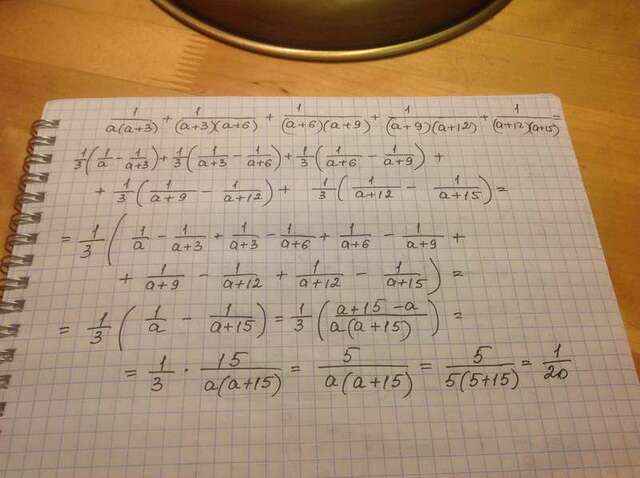 1/(a(a+3)) + 1/((a+3)(a+6)) + 1/((a+6)(a+9)) + 1/((a+9)(a+12)) + 1/((a+12)(a+15)) =
1/3 (1/a - 1/(a+3)) + 1/3 (1/(a+3) - 1/(a+6)) + 1/3 (1/(a+6) - 1/(a+9)) +
+ 1/3 (1/(a+9) - 1/(a+12)) + 1/3 (1/(a+12) - 1/(a+15)) =
= 1/3 (1/a - 1/(a+3) + 1/(a+3) - 1/(a+6) + 1/(a+6) - 1/(a+9) +
+ 1/(a+9) - 1/(a+12) + 1/(a+12) - 1/(a+15)) =
= 1/3 (1/a - 1/(a+15)) = 1/3 ((a+15-a)/(a(a+15))) =
= 1/3 · 15/(a(a+15)) = 5/(a(a+15)) = 5/(5(5+15)) = 1/20